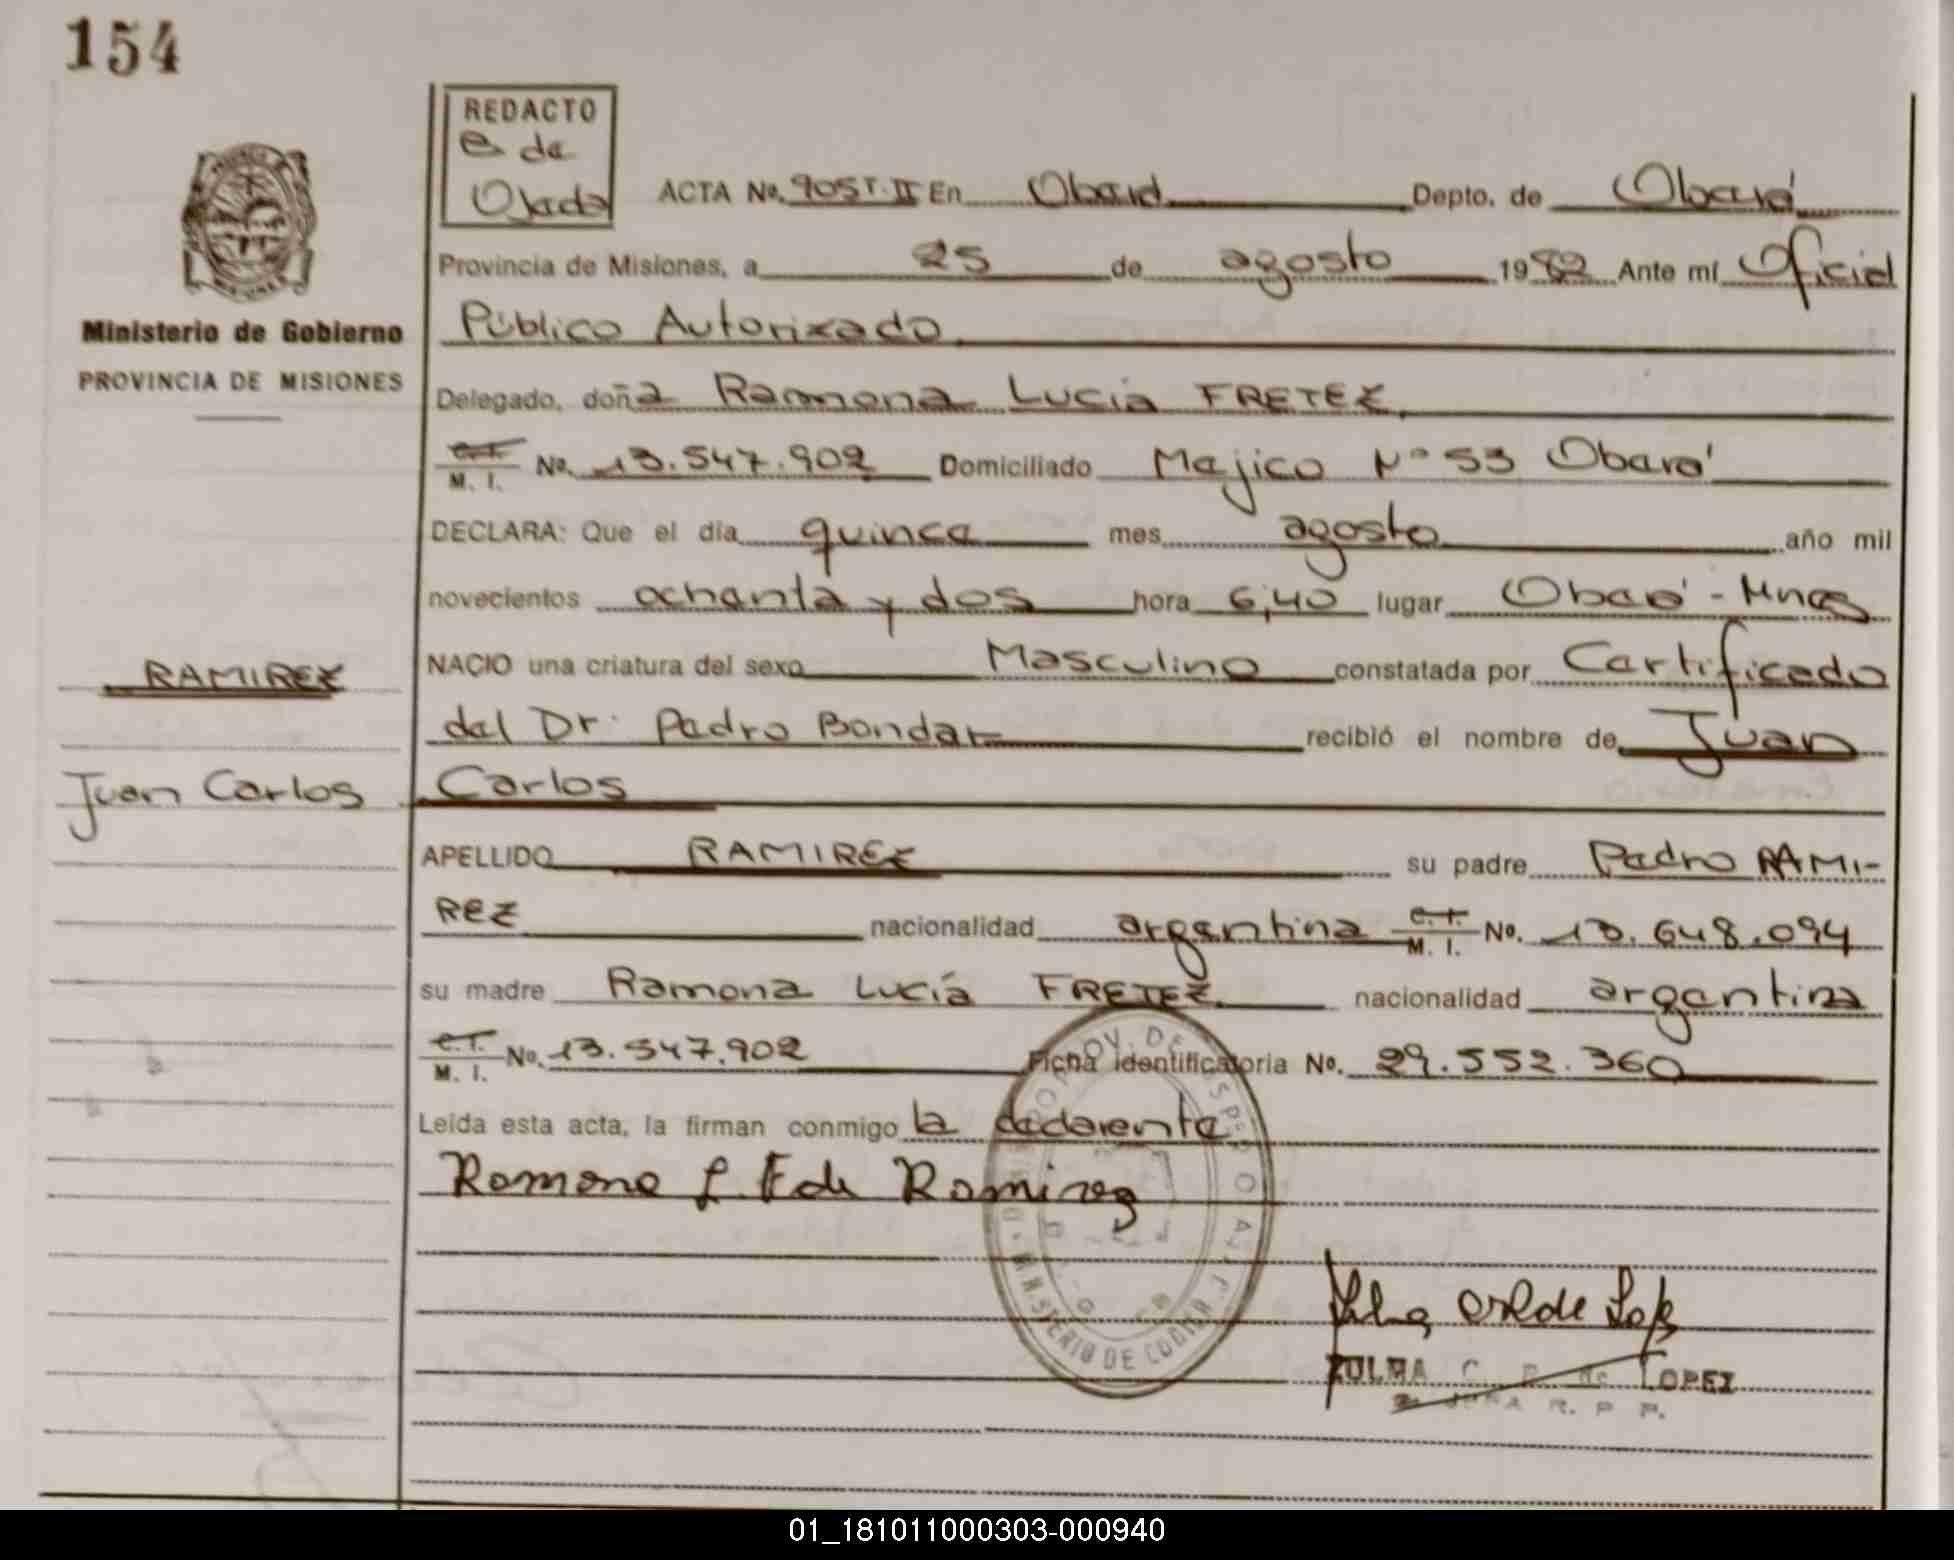 154
REDACTO
e de
Ojeda
ACTA No. 905 T. II En Oberá Depto. de Oberá
Provincia de Misiones, a 25 de agosto 1982 Ante mí Oficial
Público Autorizado
Ministerio de Gobierno
PROVINCIA DE MISIONES
Delegado, doña Ramona Lucía FRETEZ,
C.I. M. I. No. 13.547.902 Domiciliado Mejico N° 53 Oberá
DECLARA: Que el día quince mes agosto año mil
novecientos ochenta y dos hora 6,40 lugar Oberá - Mnes
RAMIREZ
NACIO una criatura del sexo Masculino constatada por Certificado
del Dr. Pedro Bondar recibió el nombre de Juan
Juan Carlos
Carlos
APELLIDO RAMIREZ su padre Pedro RAMI-
REZ nacionalidad argentina C.I. M. I. No. 13.648.094
su madre Ramona Lucía FRETEZ nacionalidad argentina
C.I. M. I. No. 13.547.902 Ficha identificatoria No. 29.552.360
Leída esta acta, la firman conmigo la declarente
Ramona L. F de Ramirez
MINISTERIO DE
ZULMA C. de LOPEZ
R. P. P.
01_181011000303-000940